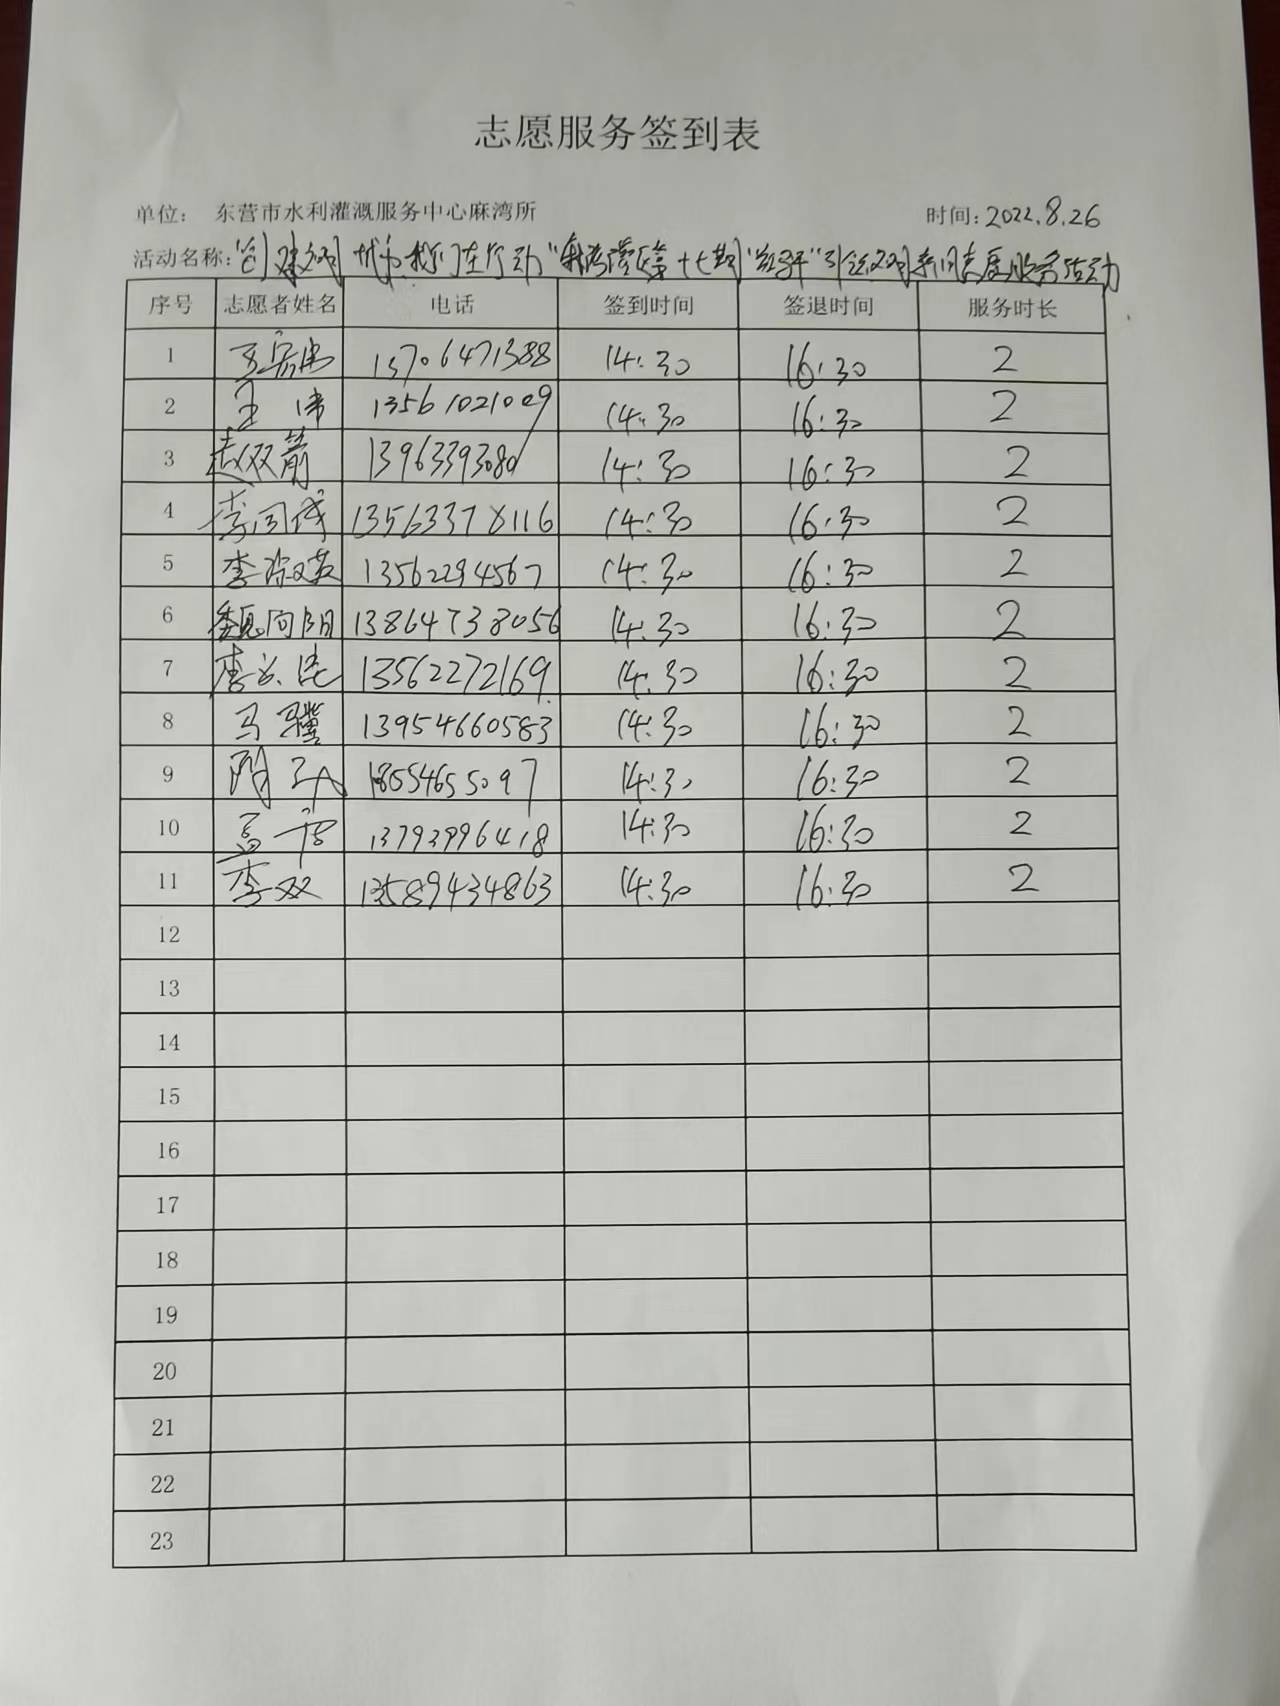 志愿服务签到表
单位： 东营市水利灌溉服务中心麻湾所 时间：2022.8.26
活动名称：创建文明城市 我们在行动
序号 志愿者姓名 电话 签到时间 签退时间 服务时长
1 13706471388 14:30 16:30 2
2 王伟 13561021009 14:30 16:30 2
3 赵双箭 13963393080 14:30 16:30 2
4 李同 13563378116 14:30 16:30 2
5 李淑英 13562294567 14:30 16:30 2
6 魏向阳 13864738056 14:30 16:30 2
7 李 13562272169 14:30 16:30 2
8 马骥 13954660583 14:30 16:30 2
9 18554655097 14:30 16:30 2
10 13793996418 14:30 16:30 2
11 李双 13589434863 14:30 16:30 2
12
13
14
15
16
17
18
19
20
21
22
23